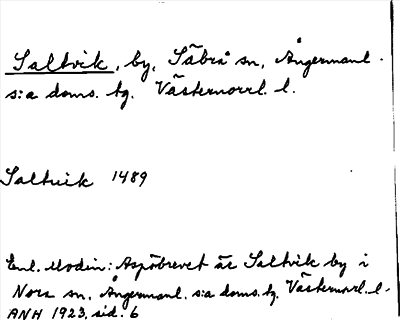 Saltvik, by, Säbrå sn, Ångermanl.
s:a doms. tg. Västernorrl. l.
Saltuik 1489
Enl. Modin: Aspöbrevet är Saltvik by i
Nora sn, Ångermanl. s:a doms. tg. Västernorrl. l.
ANH 1923, sid. 6